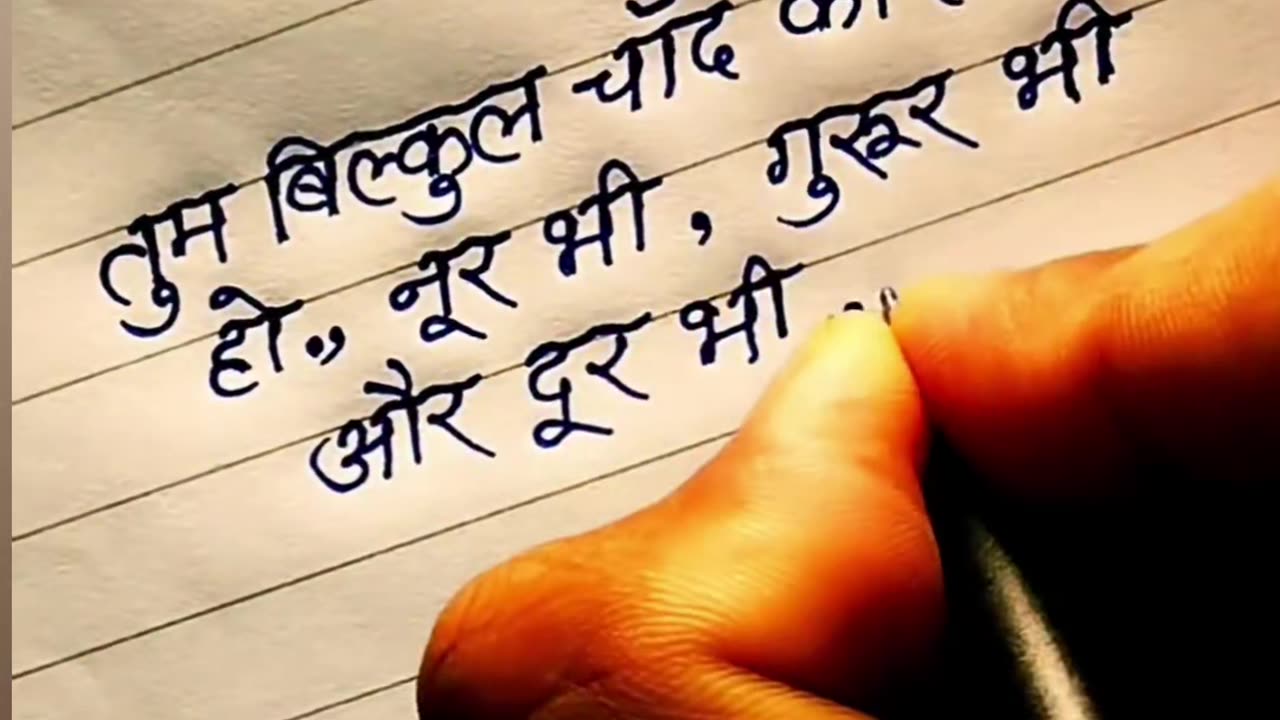 तुम बिल्कुल चाँद की
हो.,, नूर भी, गुरूर भी
और दूर भी ..